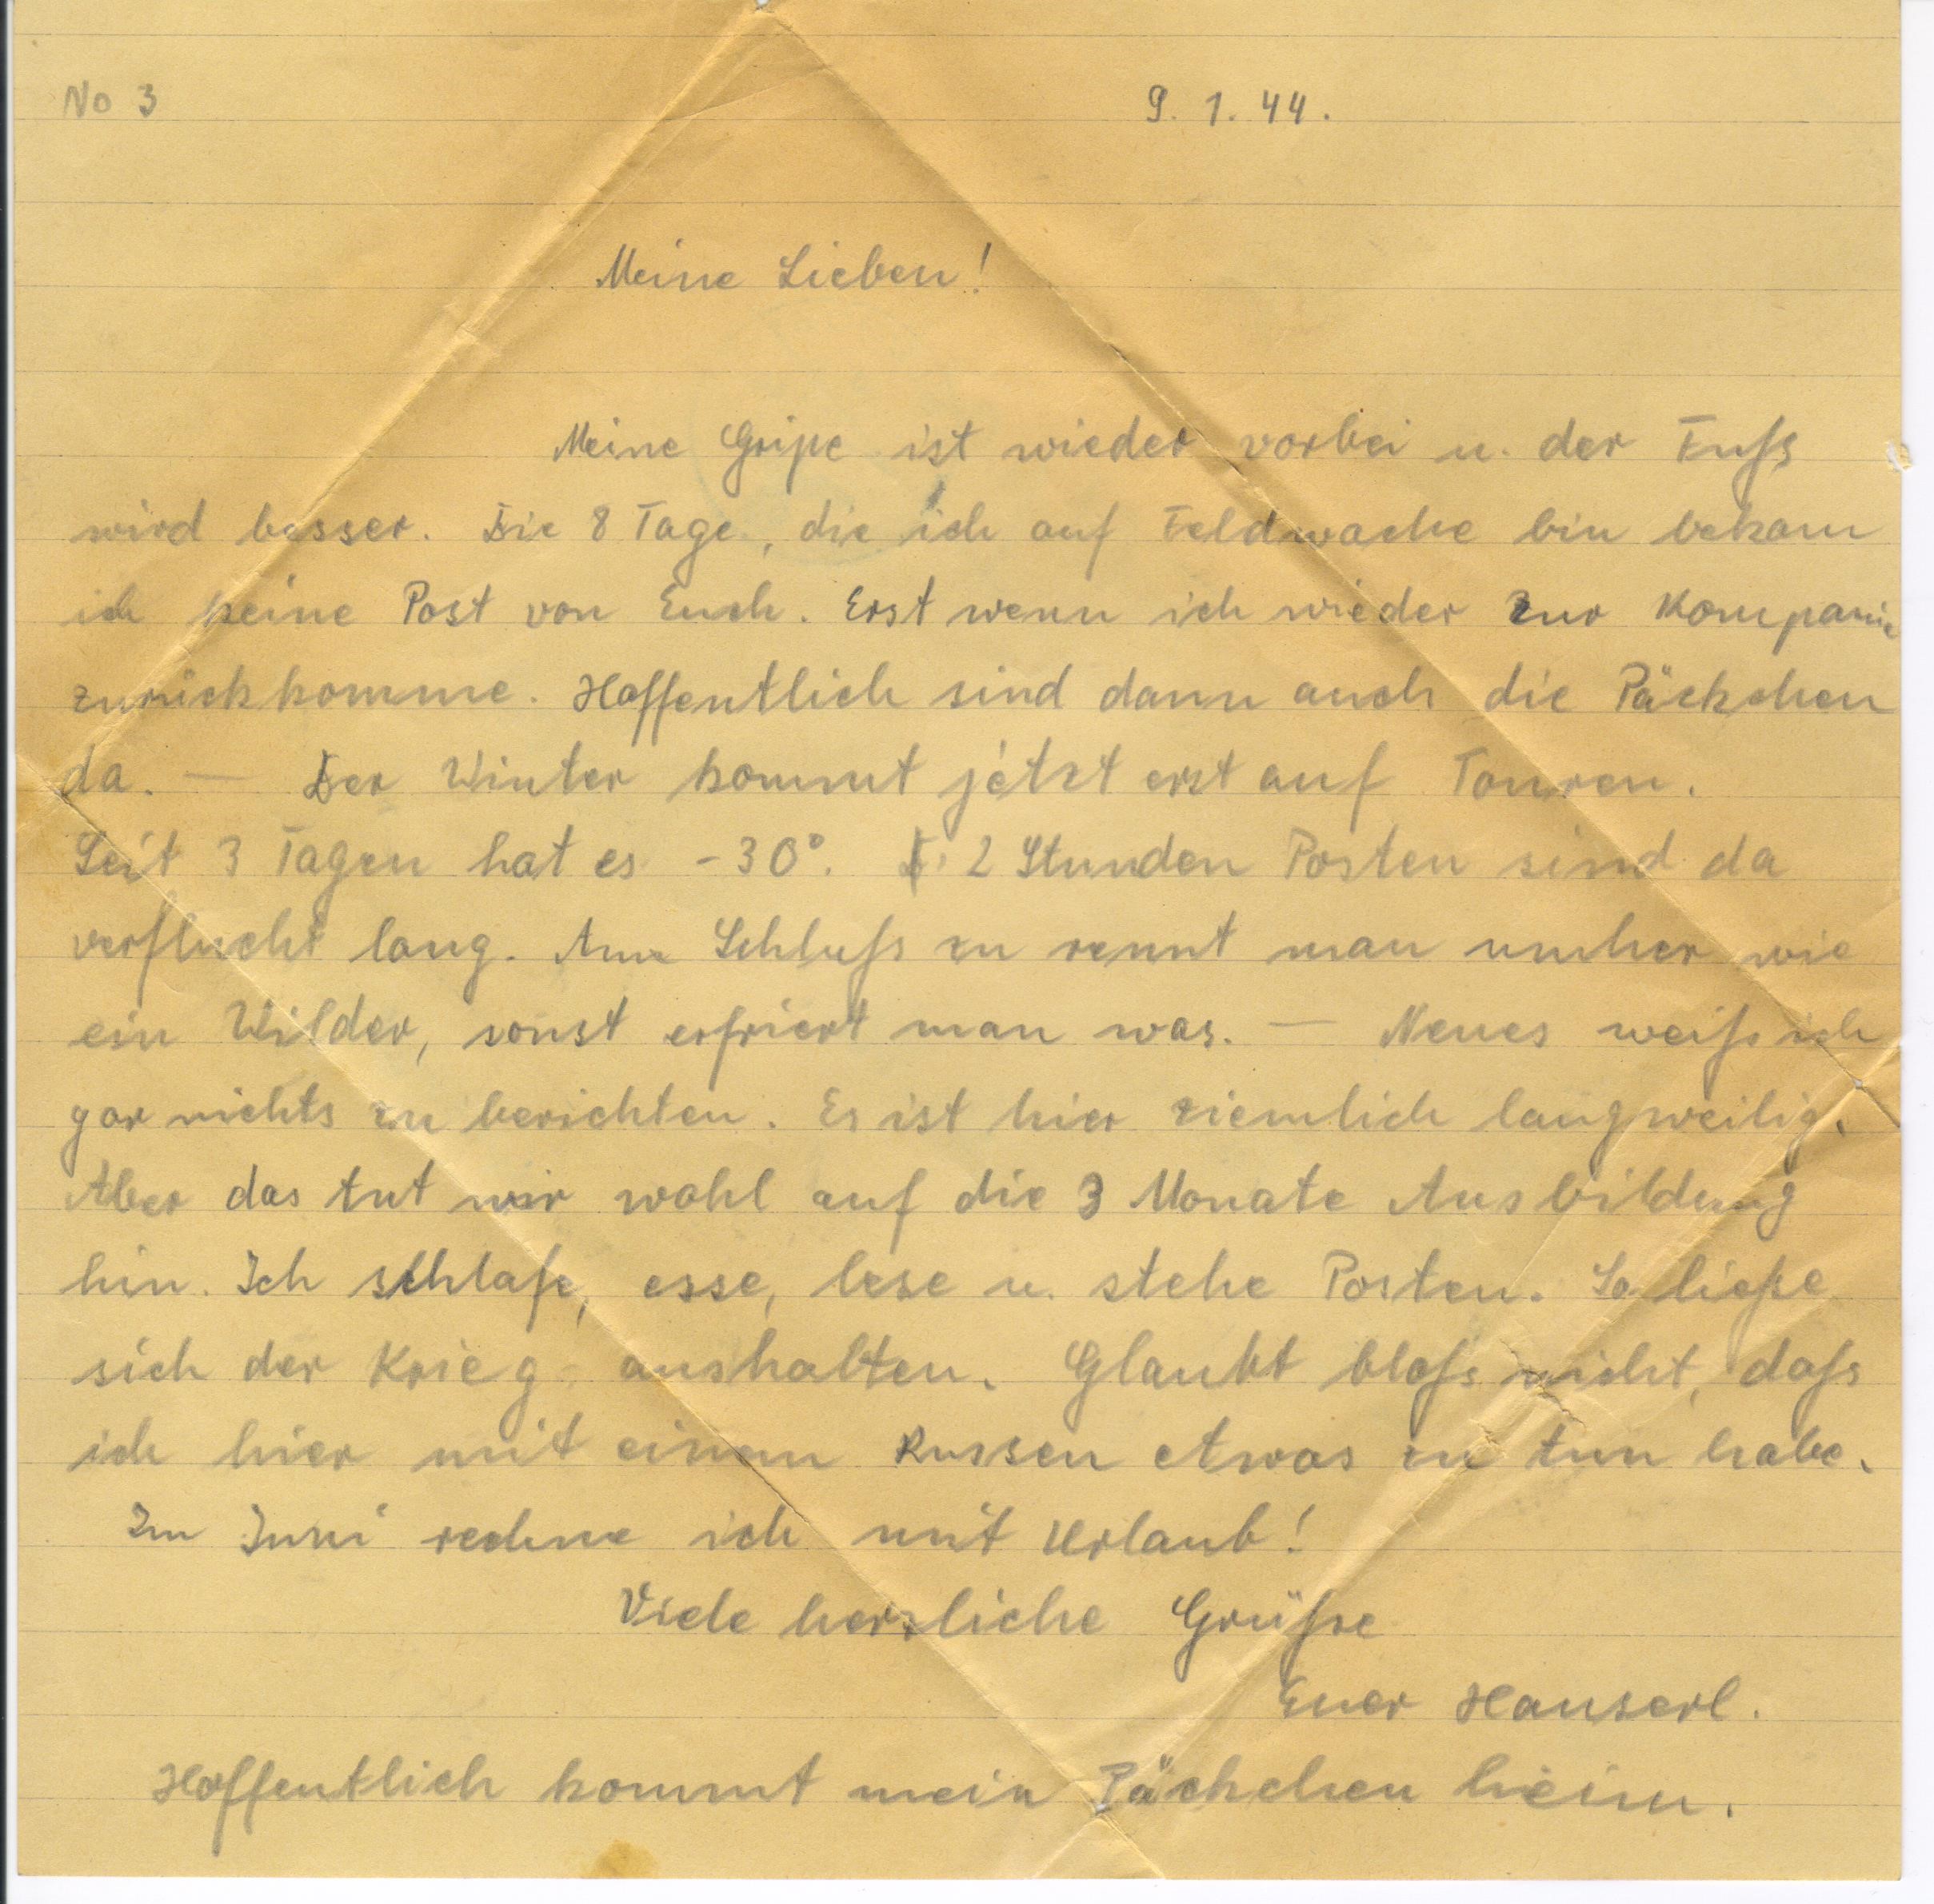 No 3
9. 1. 44.
Meine Lieben!
Meine Gripe ist wieder vorbei u. der Fuß
wird besser. Die 8 Tage, die ich auf Feldwache bin bekam
ich keine Post von Euch. Erst wenn ich wieder zur Kompanie
zurückkomme. Hoffentlich sind dann auch die Päckchen
da. — Der Winter kommt jetzt erst auf Touren.
Seit 3 Tagen hat es -30°. 2 Stunden Posten sind da
verflucht lang. Am Schluß zu rennt man umher wie
ein Wilder, sonst erfriert man was. — Neues weiß ich
gar nichts zu berichten. Es ist hier ziemlich langweilig.
Aber das tut mir wohl auf die 3 Monate Ausbildung
hin. Ich schlafe, esse, lese u. stehe Posten. So ließe
sich der Krieg aushalten. Glaubt bloß nicht, daß
ich hier mit einem Russen etwas zu tun habe.
Im Juni rechne ich mit Urlaub!
Viele herzliche Grüße
Euer Hanserl.
Hoffentlich kommt mein Päckchen heim.